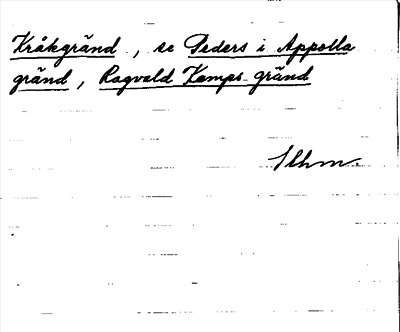 Kråkgränd, se Peders i Appolla
gränd, Ragvald Kamps gränd
Sthm.